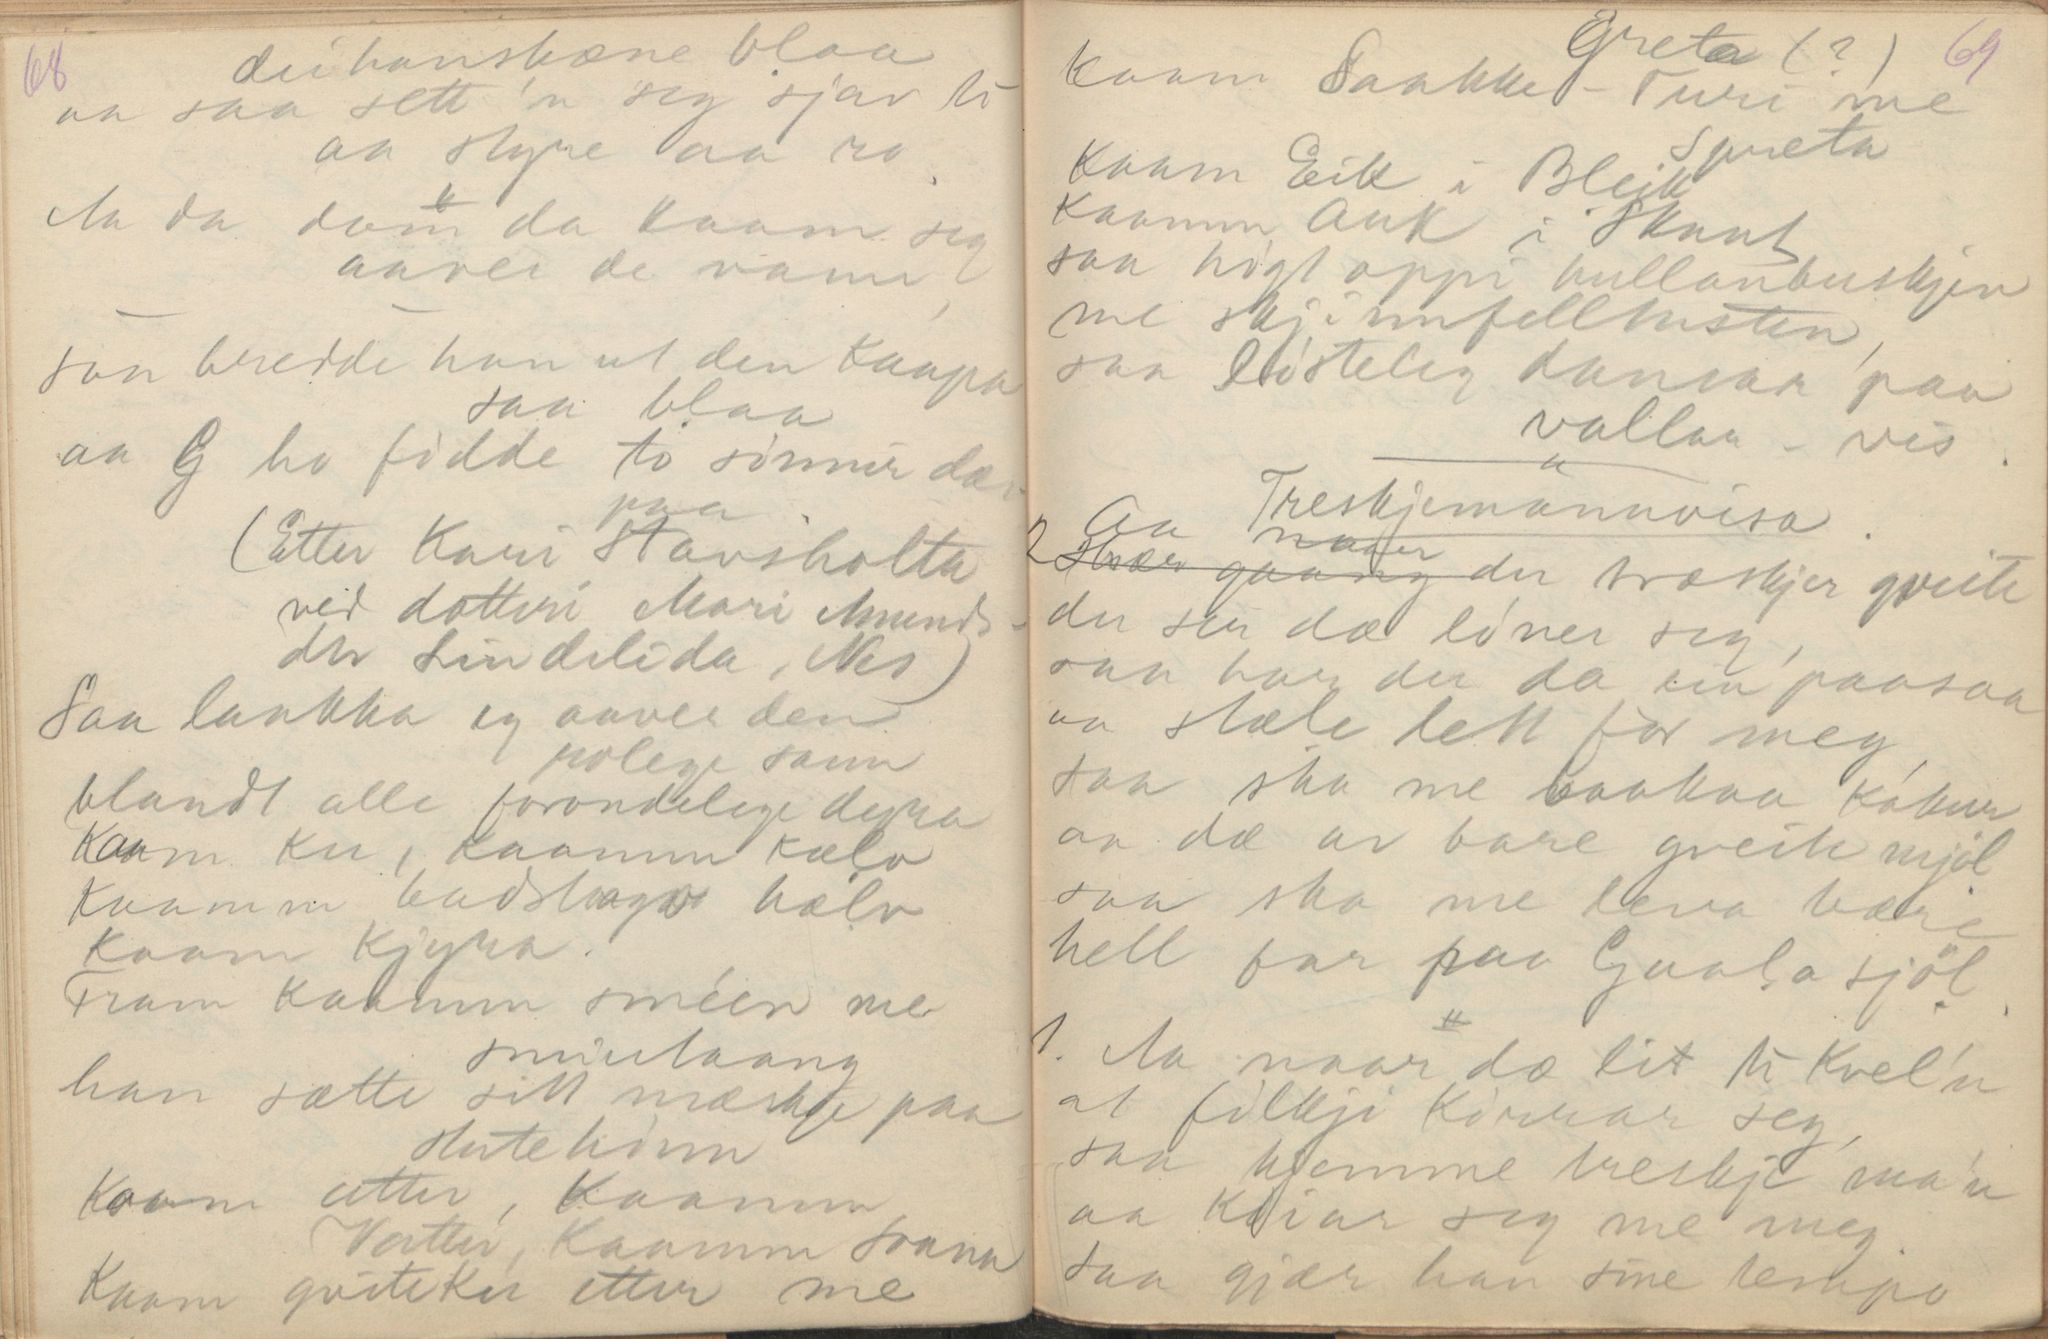 68
dei hanskæne blaa
aa saa sett'n seg sjav ti
aa styre aa ro.
Aa da dom da kaam seg
aaver de vann,
saa bredde han ut den kaapa
saa blaa
aa G ho fødde to sønner dær
paa.
(Etter Kari Stavsholta
ved dotteri Mari Amunds-
dtr Lindelida, Nes)
Saa laakka eg aaver den
rolege sann
blandt alle forondelege dyra
Kaam ku, kaamm kælv
kaamm hælv
kaam kjyra.
Fram kaamm sméen me
smietaang
han sætte sitt mærkje paa
stutehønn
Kaam etter, kaamm
Vetter, kaamm svana
kaam qvitekei etter me
69
Greta (?)
kaam Saakke-Turi me
Spreta
kaam Eik i Bleik
kaamm Auk i Skaut
saa høgt oppi hullanbuskjen
me skjinnfellhusten,
saa listeleg dansaa paa
vallaa-vis.
Treskjemannvisa.
2 Aa naar
du træskjer qveite
du ser dæ løner seg,
saa har du da ein paasaa
aa stæle lett for meg
saa ska me baakaa kakur
aa dæ av bare qveite mjøl
saa ska me leva bære
hell far paa Gaala sjøl.
1. Aa naar dæ lit ti kvel'n
at følkji kørrar seg,
saa kjemme treskje ma'n
aa køiar seg me meg
saa gjær han sine tempo